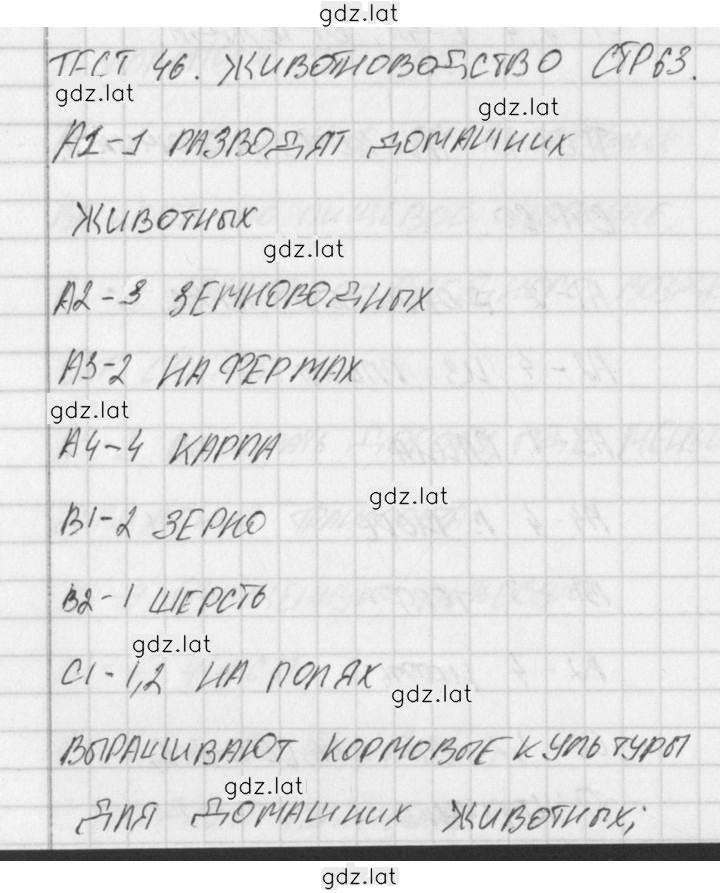 gdz.lat
ТЕСТ 46. ЖИВОТНОВОДСТВО СТР 63.
gdz.lat
gdz.lat
А1-1 РАЗВОДЯТ ДОМАШНИХ
ЖИВОТНЫХ
gdz.lat
А2-3 ЗЕМНОВОДНЫХ
А3-2 НА ФЕРМАХ
gdz.lat
А4-4 КАРПА
gdz.lat
В1-2 ЗЕРНО
В2-1 ШЕРСТЬ
gdz.lat
С1-1,2 НА ПОЛЯХ
gdz.lat
ВЫРАЩИВАЮТ КОРМОВЫЕ КУЛЬТУРЫ
gdz.lat
ДЛЯ ДОМАШНИХ ЖИВОТНЫХ;
gdz.lat